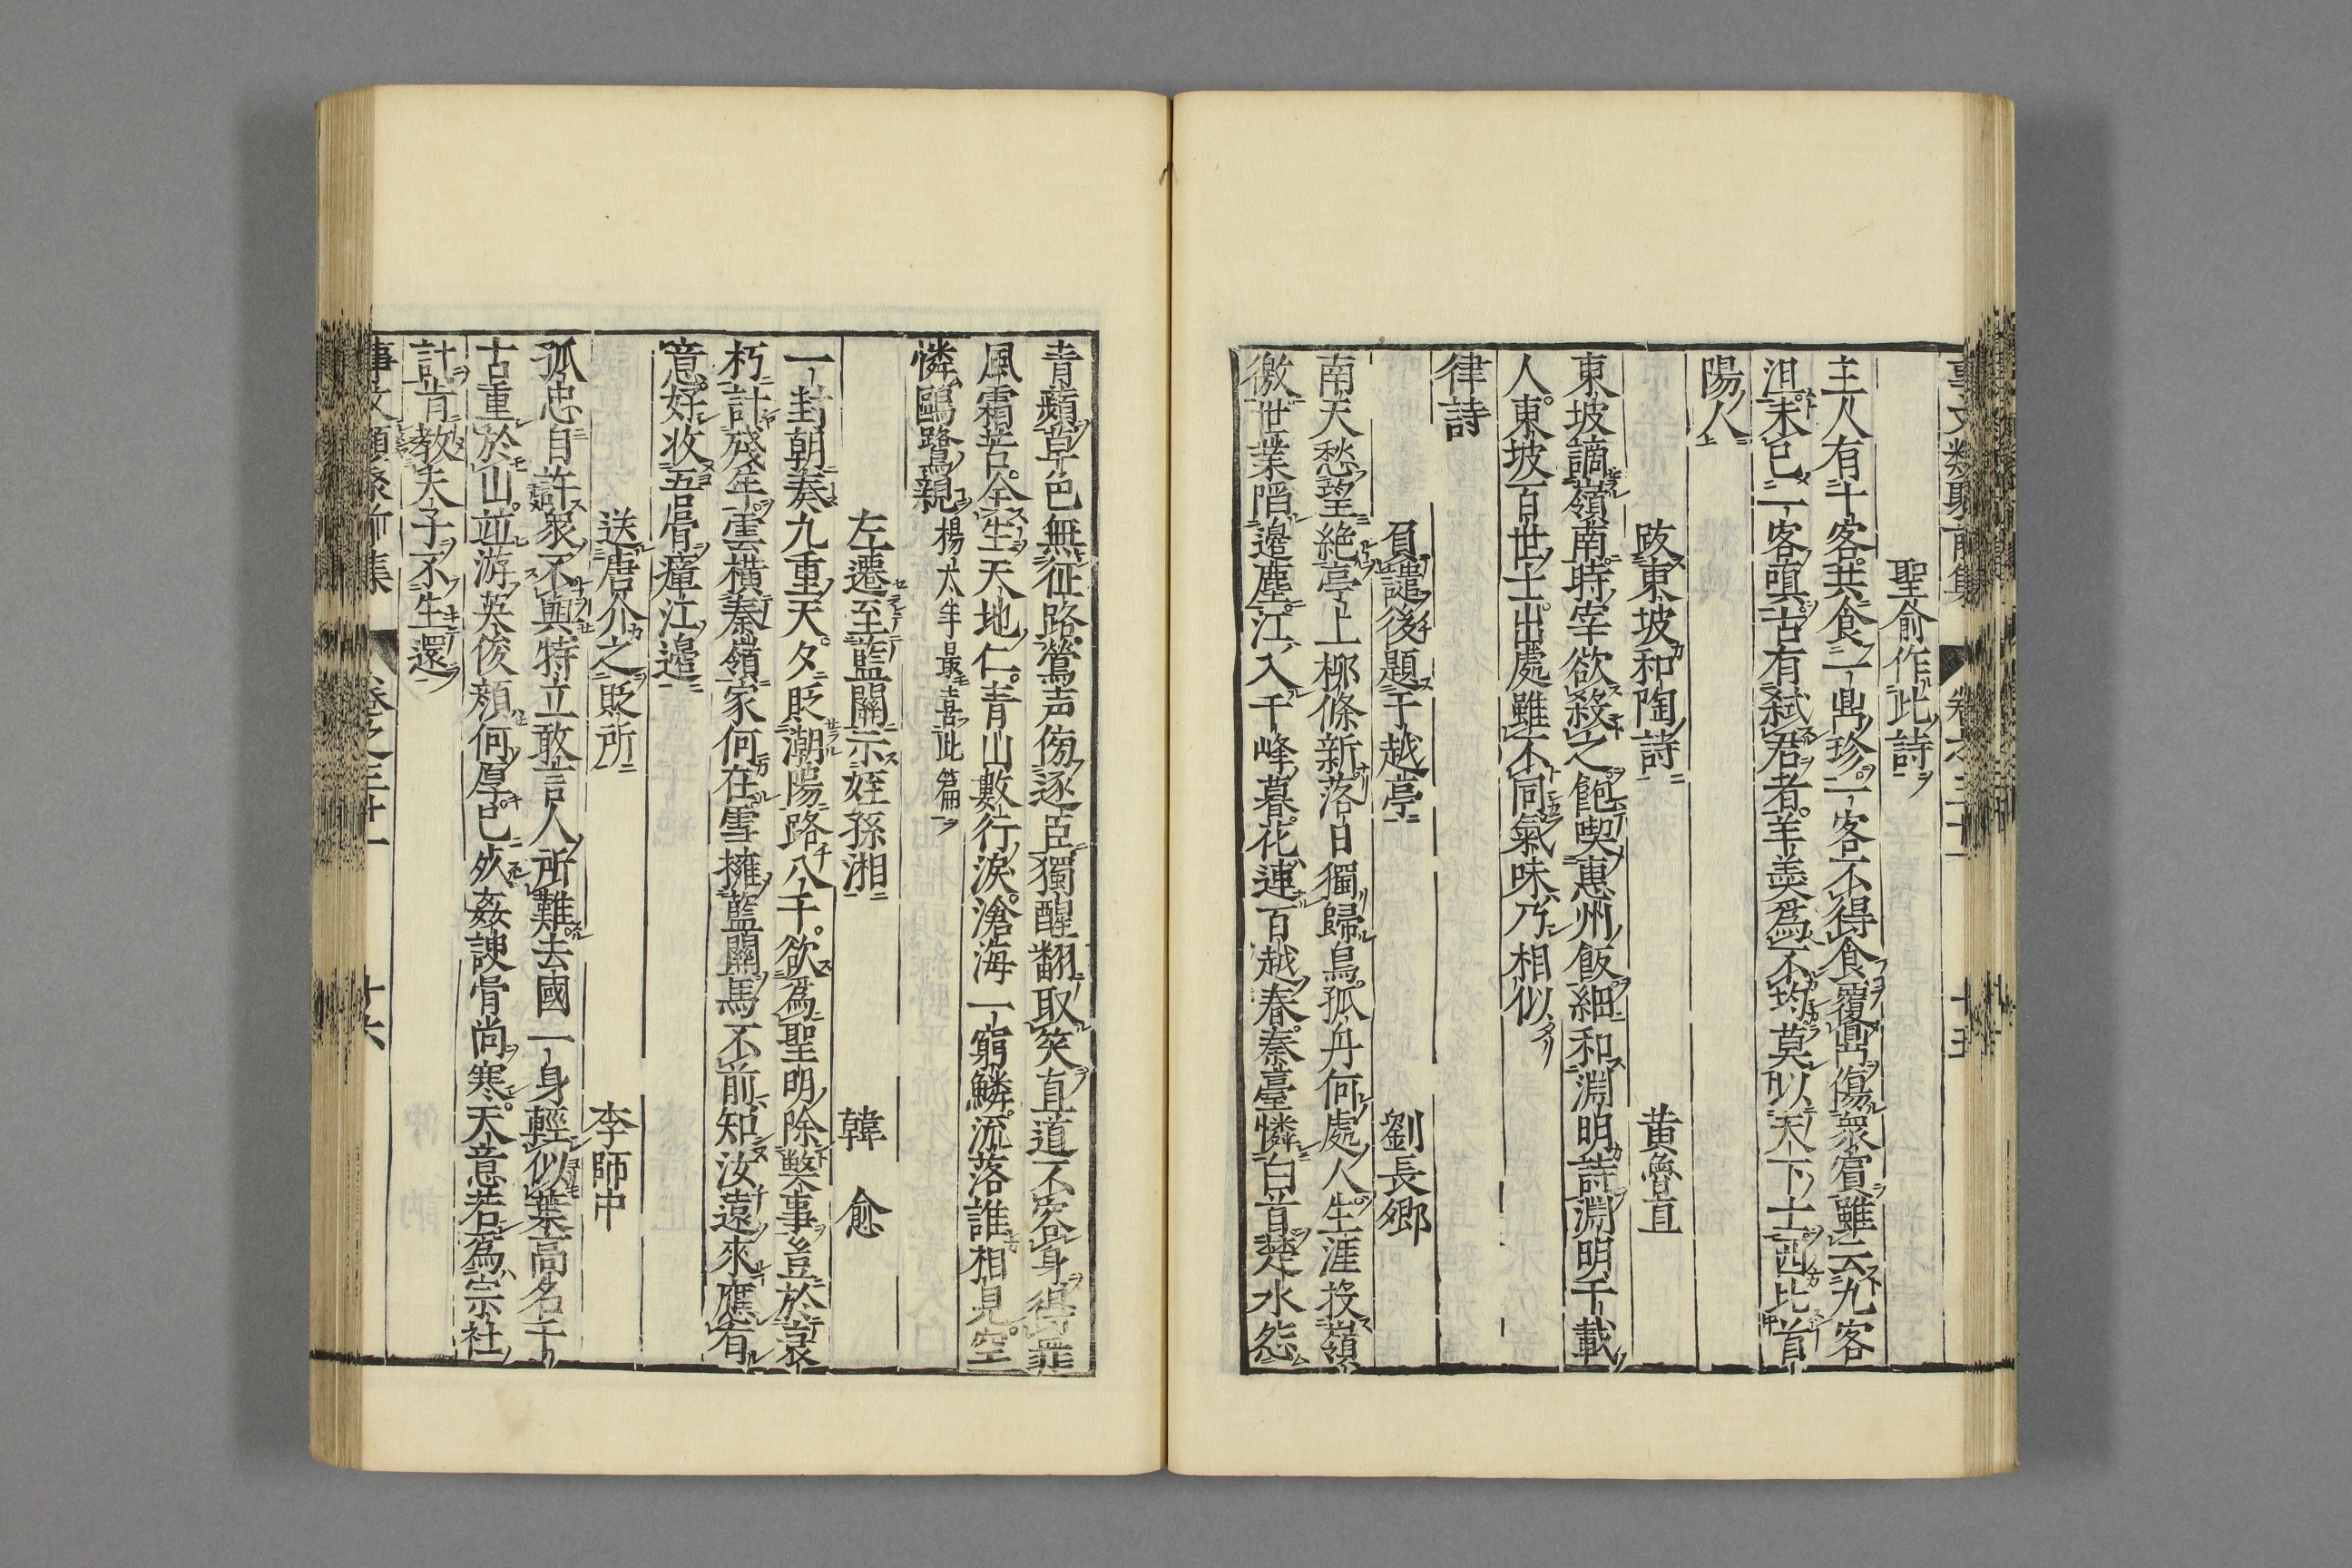 事文類聚前集 卷之三十一 十五
聖俞作此詩
主人有十客共食一鼎珍一客不得食覆鼎傷衆賓雖云九客
沮未已一客嗔古有弑君者羊羹為不均莫以天下士西比首
陽人
跋東坡和陶詩 黄魯直
東坡謫嶺南時宰欲殺之飽喫惠州飯細和淵明詩淵明千載
人東坡百世士出處雖不同氣味乃相似
律詩
負譴後題于越亭 劉長卿
南天愁望絶亭上柳條新落日獨歸鳥孤舟何處人生涯投嶺
徼世業陷邊塵江入千峰暮花連百越春秦臺憐白首楚水怨
青蘋草色無征路鶯声傍逐臣獨醒翻取笑直道不容身得罪
風霜苦全生天地仁青山數行淚滄海一窮鱗流落誰相見空
憐鷗鷺親楊大年最喜此篇
左遷至藍關示姪孫湘 韓愈
一封朝奏九重天夕貶潮陽路八千欲為聖明除弊事豈於衰
朽計殘年雲橫秦嶺家何在雪擁藍關馬不前知汝遠來應有
意好收吾骨瘴江邊
送唐介之貶所 李師中
孤忠自許衆不與特立敢言人所難去國一身輕似葉高名千
古重於山並游英俊頬何厚已死姦諛骨尚寒天意若為宗社
計肯教夫子不生還
事文類聚前集 卷之三十一 十六